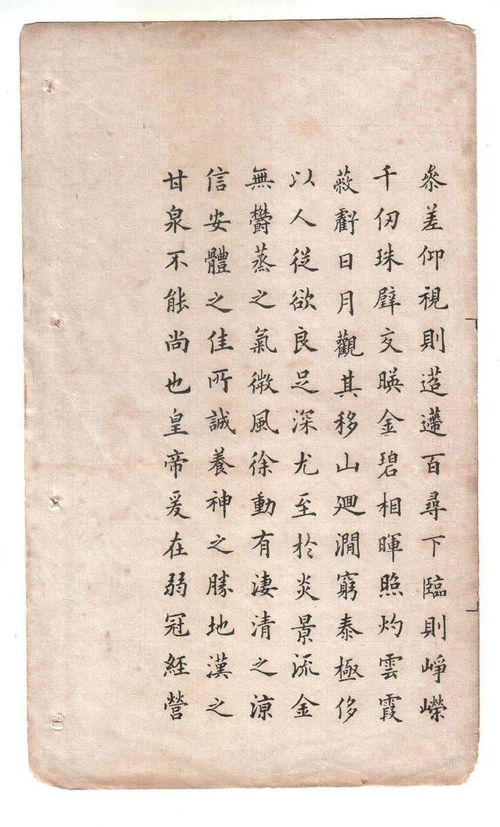 參差仰視則迢遰百尋下臨則崢嶸
千仞珠壁交暎金碧相暉照灼雲霞
蔽虧日月觀其移山廻澗窮泰極侈
以人從欲良足深尤至於炎景流金
無欝蒸之氣微風徐動有淒清之涼
信安體之佳所誠養神之勝地漢之
甘泉不能尚也皇帝爰在弱冠經營